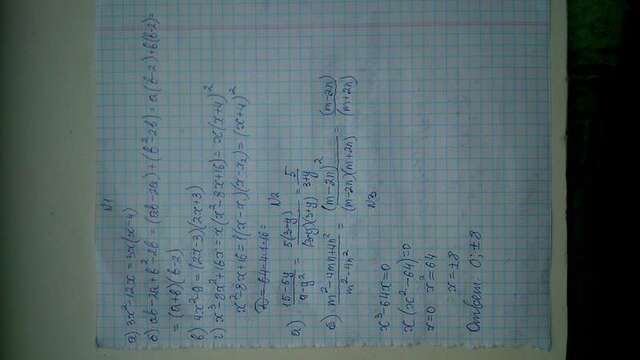 №1
а) 3x²-12x = 3x(x-4)
б) ab-2a+b²-2b = (ab-2a)+(b²-2b) = a(b-2)+b(b-2) =
= (a+b)(b-2)
в) 4x²-9 = (2x-3)(2x+3)
г) x³-8x²+16x = x(x²-8x+16) = x(x+4)²
x²-8x+16 = (x-x₁)(x-x₂) = (x+4)²
№2
а) 15-5y / 9-y² = 5(3-y) / (3-y)(3+y) = 5 / 3+y
б) m²-4mn+4n² / m²-4n² = (m-2n)² / (m-2n)(m+2n) = (m-2n) / (m+2n)
№3
x³-64x=0
x(x²-64)=0
x=0 x²=64
x=±8
Ответ: 0; ±8